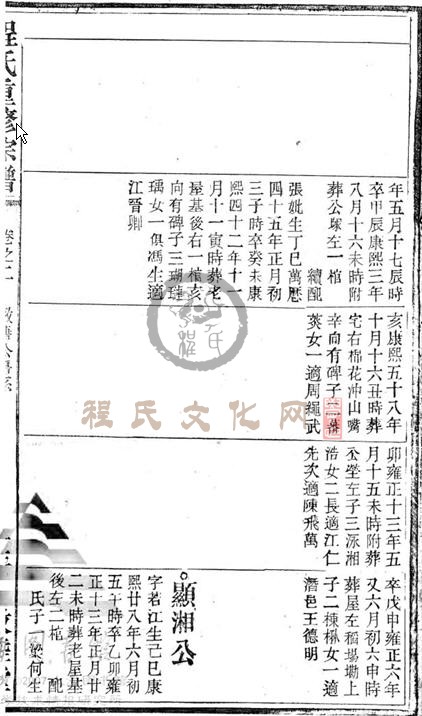 年五月十七辰時
卒甲辰康熙三年
八月十六未時附
葬公塚左一棺
續配
張妣生丁巳萬厯
四十五年正月初
三子時卒癸未康
熙四十二年十一
月十一寅時葬老
屋基後右一棺亥
向有碑子三瑚璉
瑀女一俱馮生適
江晉卿
亥康熙五十八年
十月十六丑時葬
宅右棉花沖山嘴
辛向有碑子二
女一適周繩武
卯雍正十三年五
月十五未時附葬
公塋左子三泳湘
浩女二長適江仁
先次適陳飛萬
卒戊申雍正六年
又六月初六申時
葬屋左稻場塝上
子二棟榻女一適
潛邑王德明
顯湘公
字若江生己巳康
熙廿八年六月初
五午時卒乙卯雍
正十三年正月廿
二未時葬老屋基
後左二棺 配
氏子 何生
程氏重修宗譜
卷之二
程氏文化网